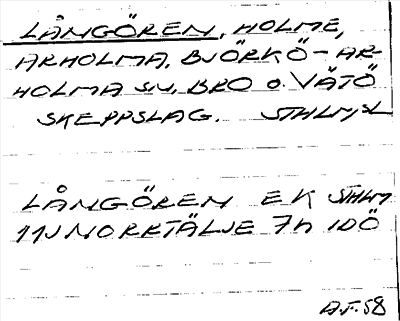 LÅNGÖREN, HOLME,
ARHOLMA, BJÖRKÖ-AR-
HOLMA SN, BRO o. VÄTÖ
SKEPPSLAG. STHLMSL
LÅNGÖREN EK STHLM
11J NORRTÄLJE 7h IDÖ
A.F. 58